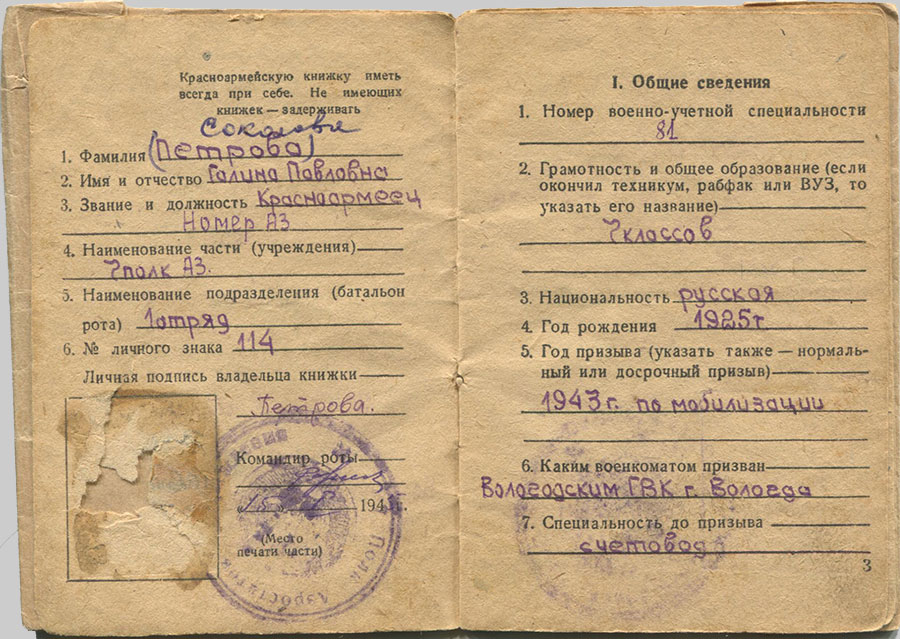 Красноармейскую книжку иметь
всегда при себе. Не имеющих
книжек — задерживать
1. Фамилия (Петрова)
2. Имя и отчество Галина Павловна
3. Звание и должность Красноармеец
Номер АЗ
4. Наименование части (учреждения)
7полк АЗ.
5. Наименование подразделения (батальон
рота) 1отряд
6. № личного знака 114
Личная подпись владельца книжки
Петрова.
Командир роты
194 г.
(Место
печати части)
I. Общие сведения
1. Номер военно-учетной специальности
81
2. Грамотность и общее образование (если
окончил техникум, рабфак или ВУЗ, то
указать его название)
7классов
3. Национальность русская
4. Год рождения 1925г
5. Год призыва (указать также — нормаль-
ный или досрочный призыв)
1943г. по мобилизации
6. Каким военкоматом призван
Вологодским ГВК г. Вологда
7. Специальность до призыва
счетовод
3